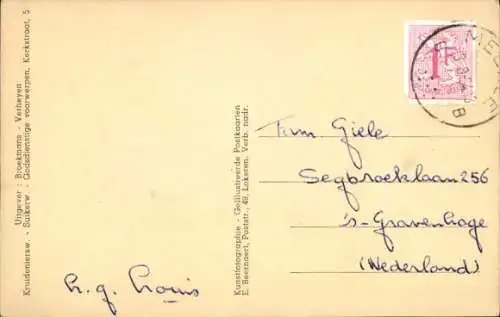 Uitgever : Broekmans - Verheyen
Kruideniersw. - Suikerw. - Godsdienstige voorwerpen, Kerkstraat, 5
Kunstfotographie - Geïllustreerde Postkaarten
E. Beernaert, Poststr., 49, Lokeren. Verb. nadr.
1F
Fam. Giele
Segbroeklaan 256
's-Gravenhage
(Nederland)
h. g. Louis